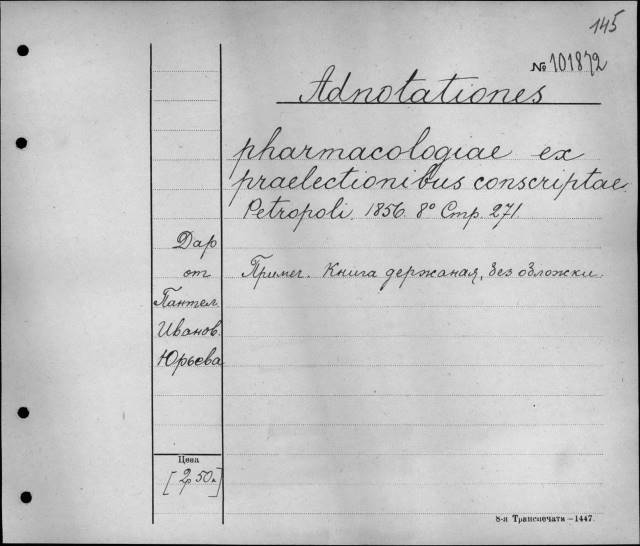 145
№ 101872
Adnotationes
pharmacologiae ex
praelectionibus conscriptae.
Petropoli. 1856. 8° Стр. 271.
Дар
от
Пантел.
Иванов.
Юрьева
Примеч. Книга держаная, без обложки.
Цена
[2р 50к]
8-я Транспечать—1447.